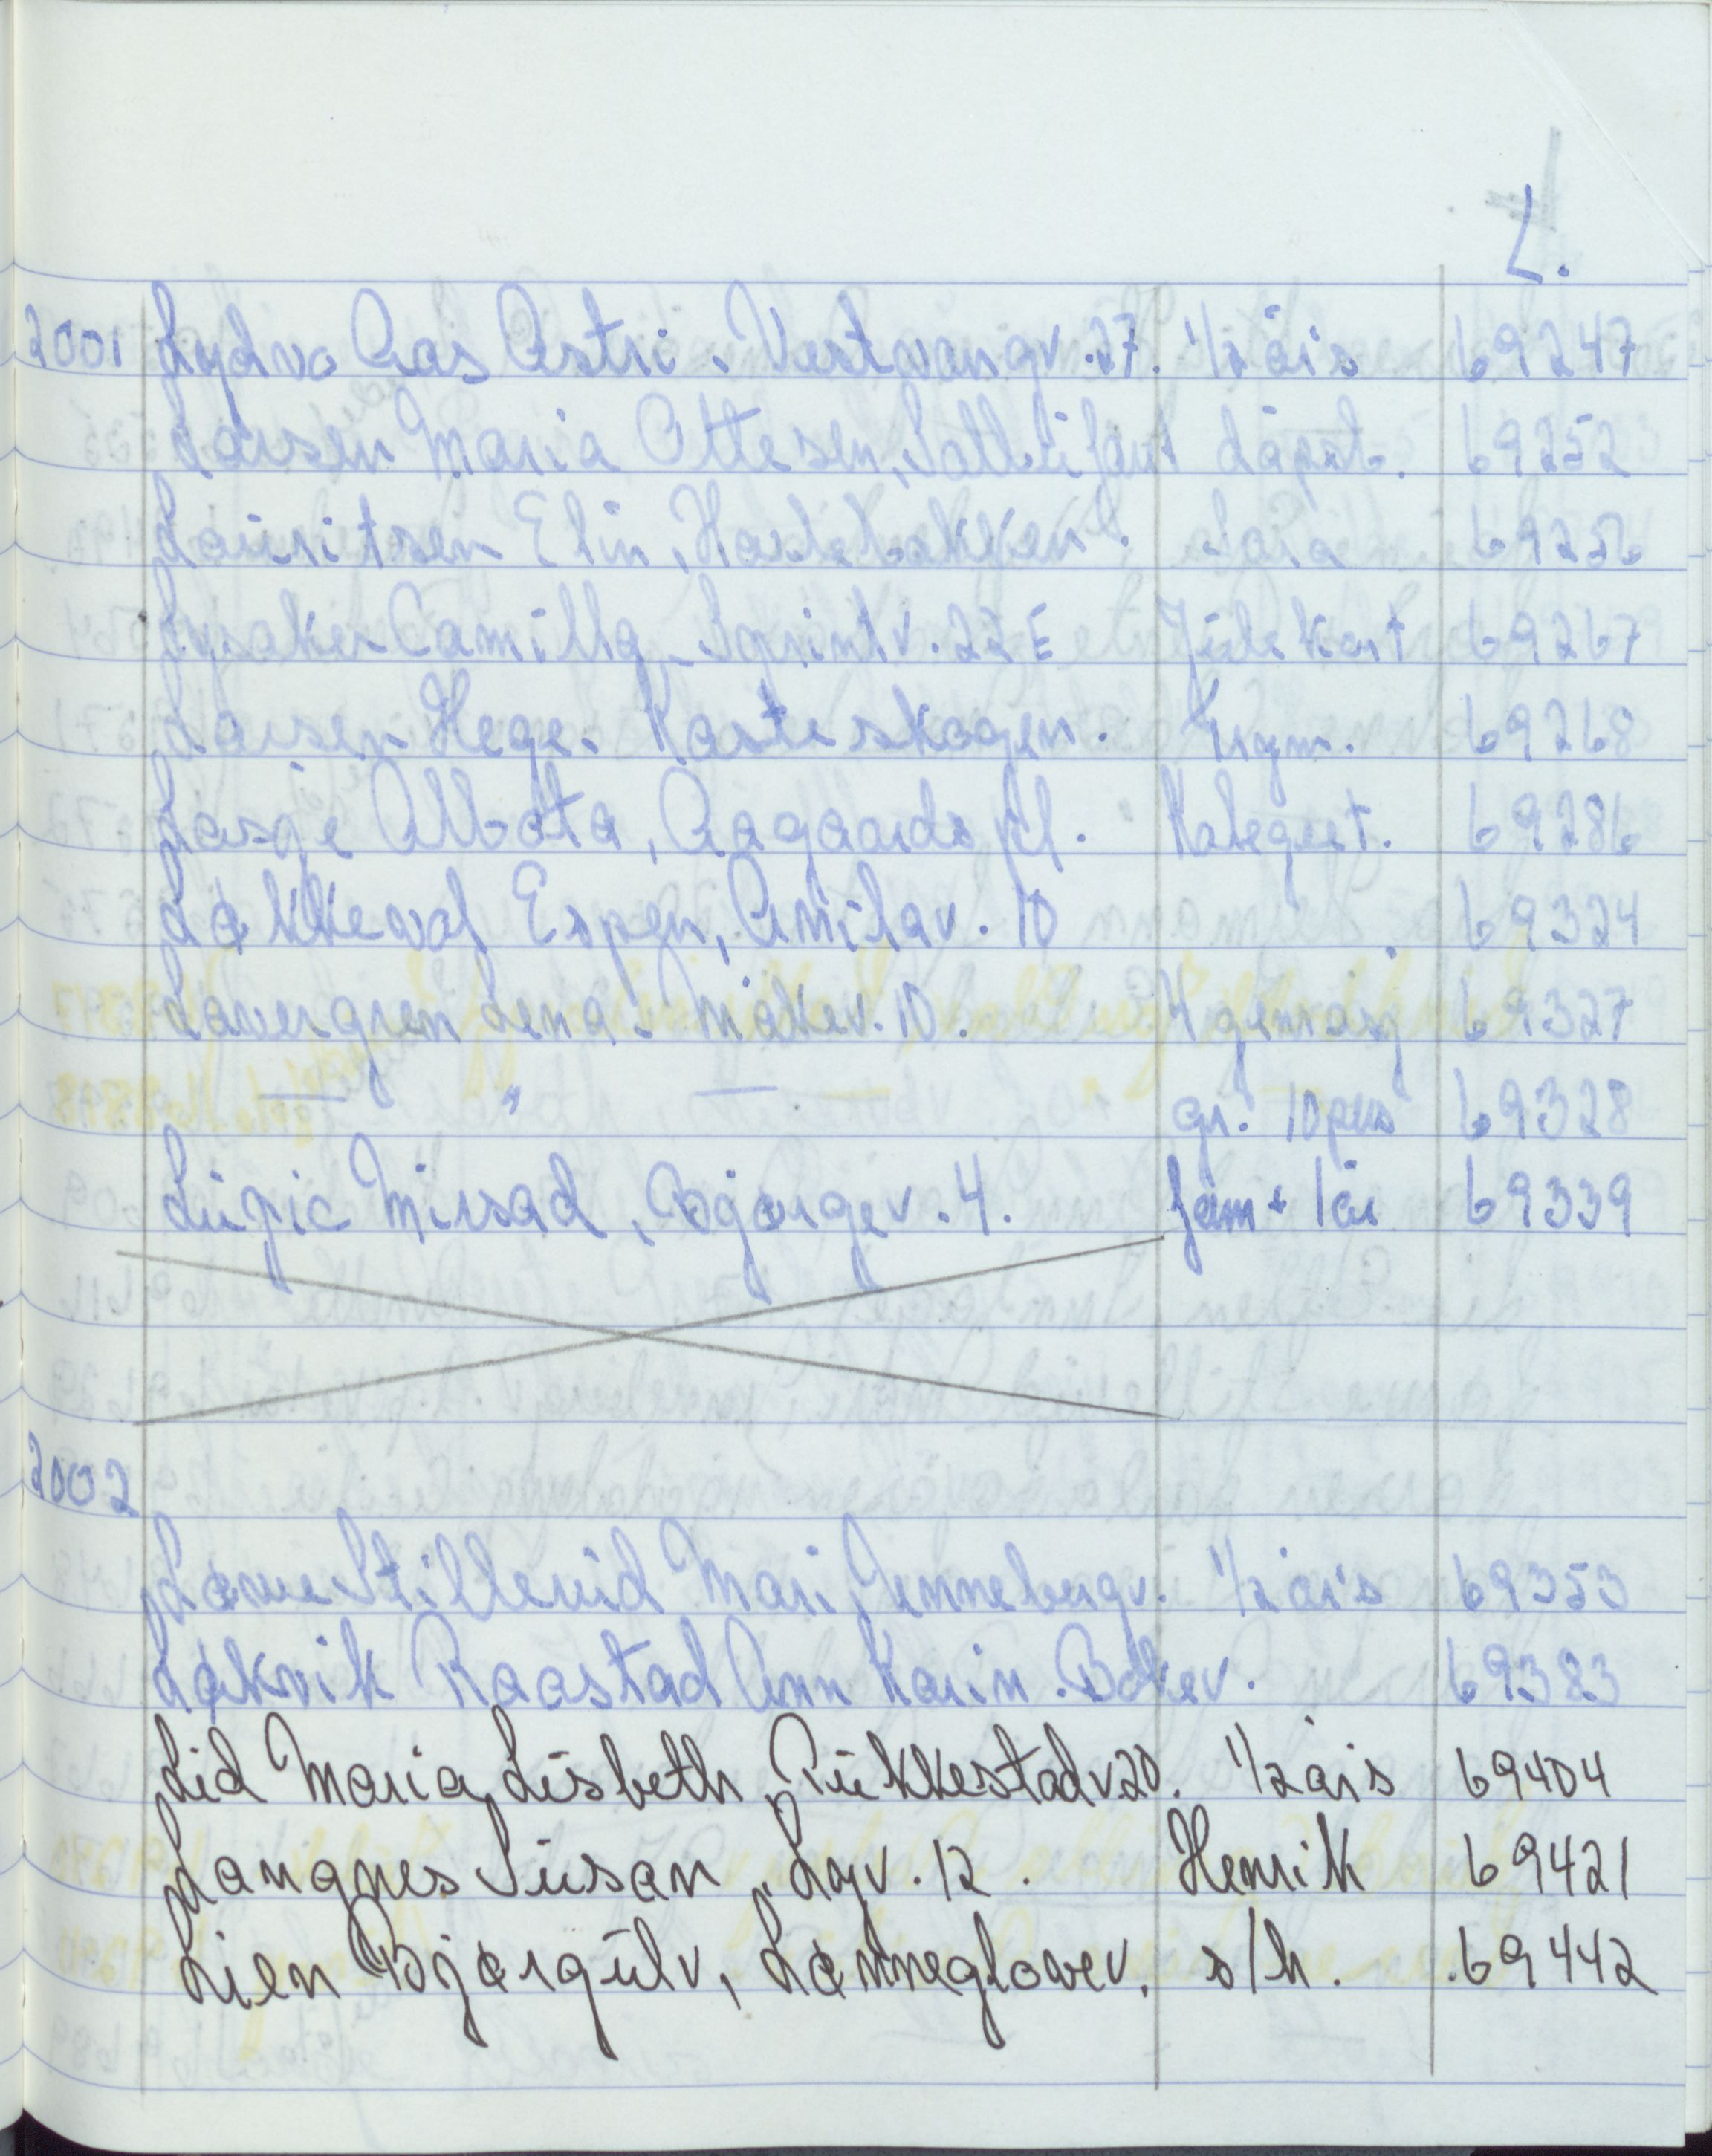 L.
2001 Lydvo Aas Astri. Vestvangv. 27. 1/2 års 69247
Larsen Maria Ottesen, Låpsb. 69252
Lauritsen Elin, Haslebakken. Sara 69256
Lysaker Camilla Sprintv. 22E Julekort 69267
Larsen Hege. Rasteskogen. Trym. 69268
Lasse Abbota, Aagaards pl. 69286
Løkkevol Espen, Amilav. 10 69324
Lavergren Lena. Måkev. 10. 4 genrasj 69327
— " — gr. 10 pks 69328
Lupic Mirsad, Bjørgev. 4. fam + 1 år 69339
2002
Løwe Stillerud Mari, Jennebergv. 1/2 års 69353
Løkvik Raastad Ann Karin. 69383
Lid Maria Lisbeth, Pukkestadv 20. 1/2 års 69404
Langnes Susan, Lyv. 12. Henrik 69421
Lien Bjørgulv, Lønneglovev. s/h. 69442